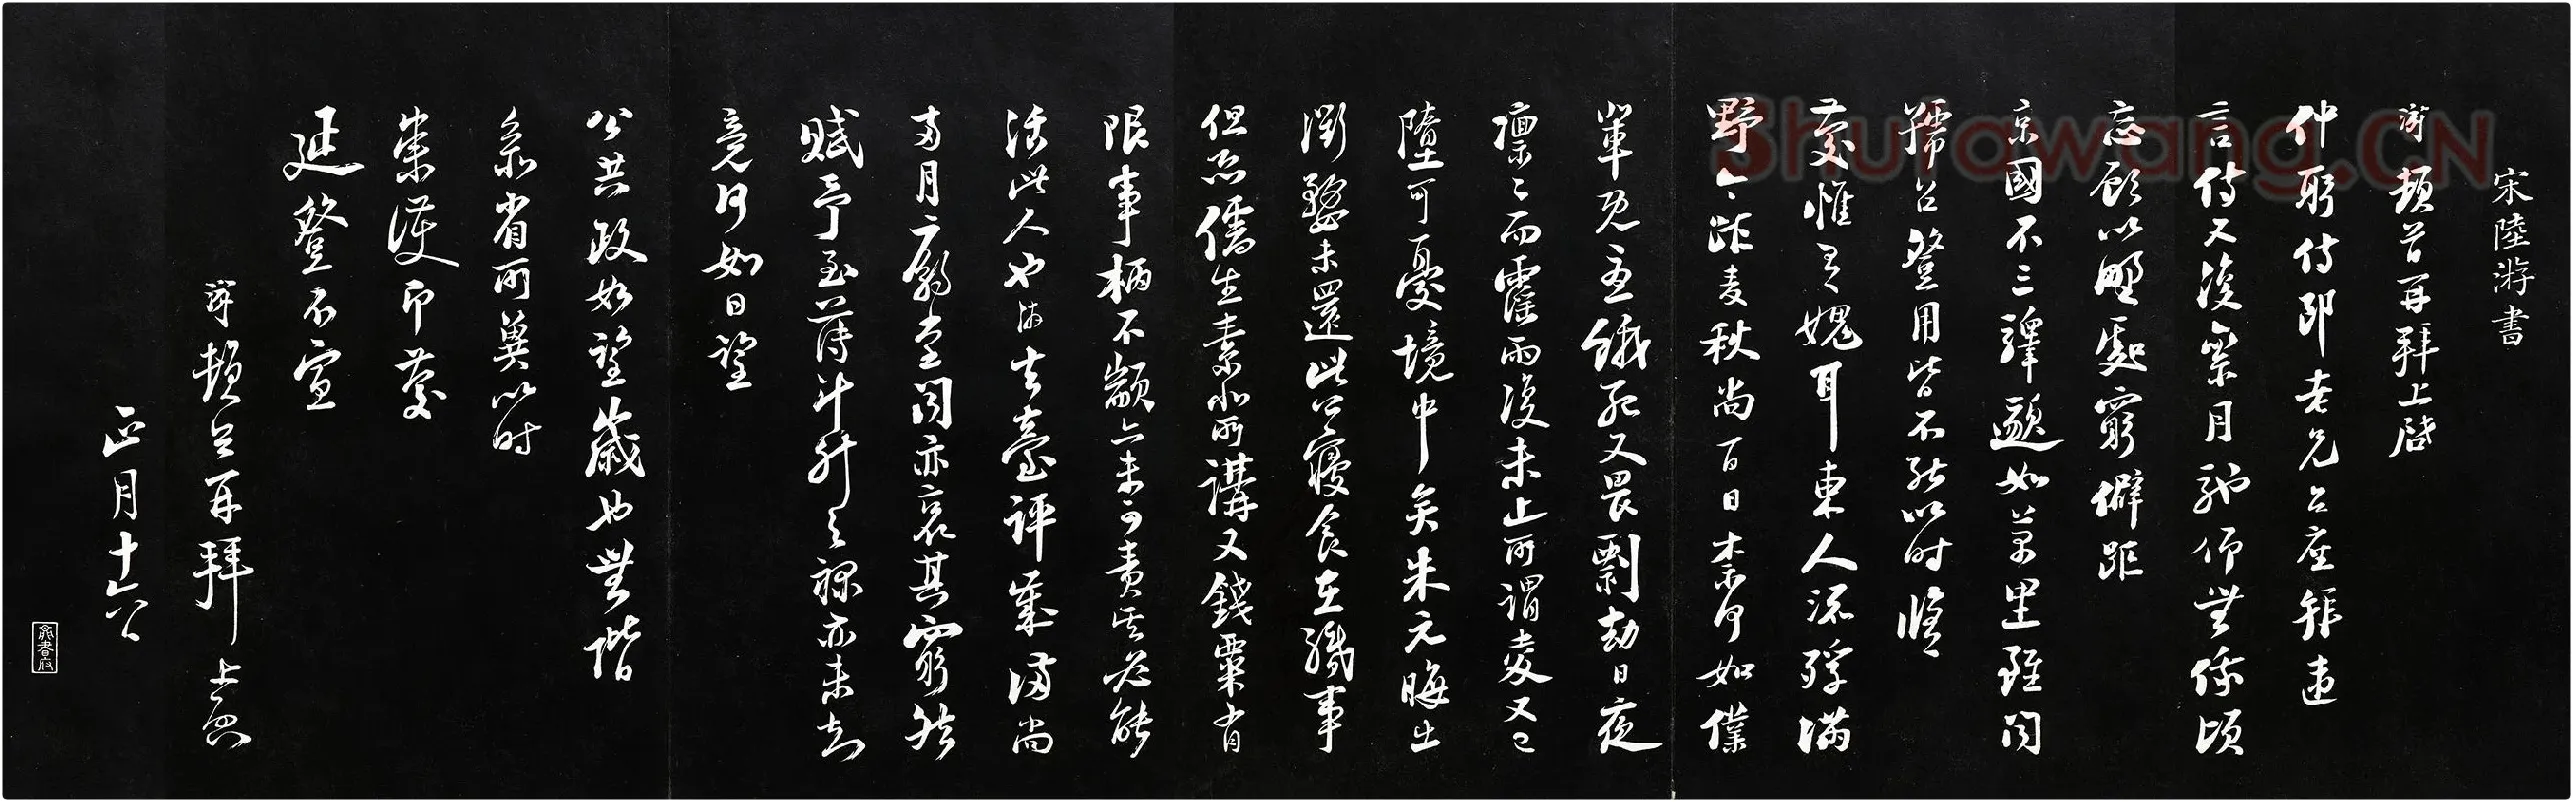 宋陸游書
游頓首再拜上啓
仲躬侍郎老兄台座拜違
言侍又復累月馳仰無係頃
忘顧以野處窮僻距
京國不三驛邈如萬里雖聞
號召登用皆不能以時修
慶惟有愧耳東人流殍滿
野今距麥秋尚百日奈何如僕
輩既憂餓死又畏剽劫日夜
凜凜而霪雨復未止所謂麥又已
墮可憂境中矣朱元晦出
衢婺未還此公寢食在職事
但恐儒生素非所講又錢粟有
限事柄不顓亦未可責其必能
活此人也游去臺評歲滿尚
兩月廟堂聞亦哀其窮然
賦予至薄斗升之祿亦未知
竟何如日望
公共政如望歲也無階
參省所冀以時
崇護即慶
延登不宣
游頓首再拜上啓
正月十六日
Shufawang.CN